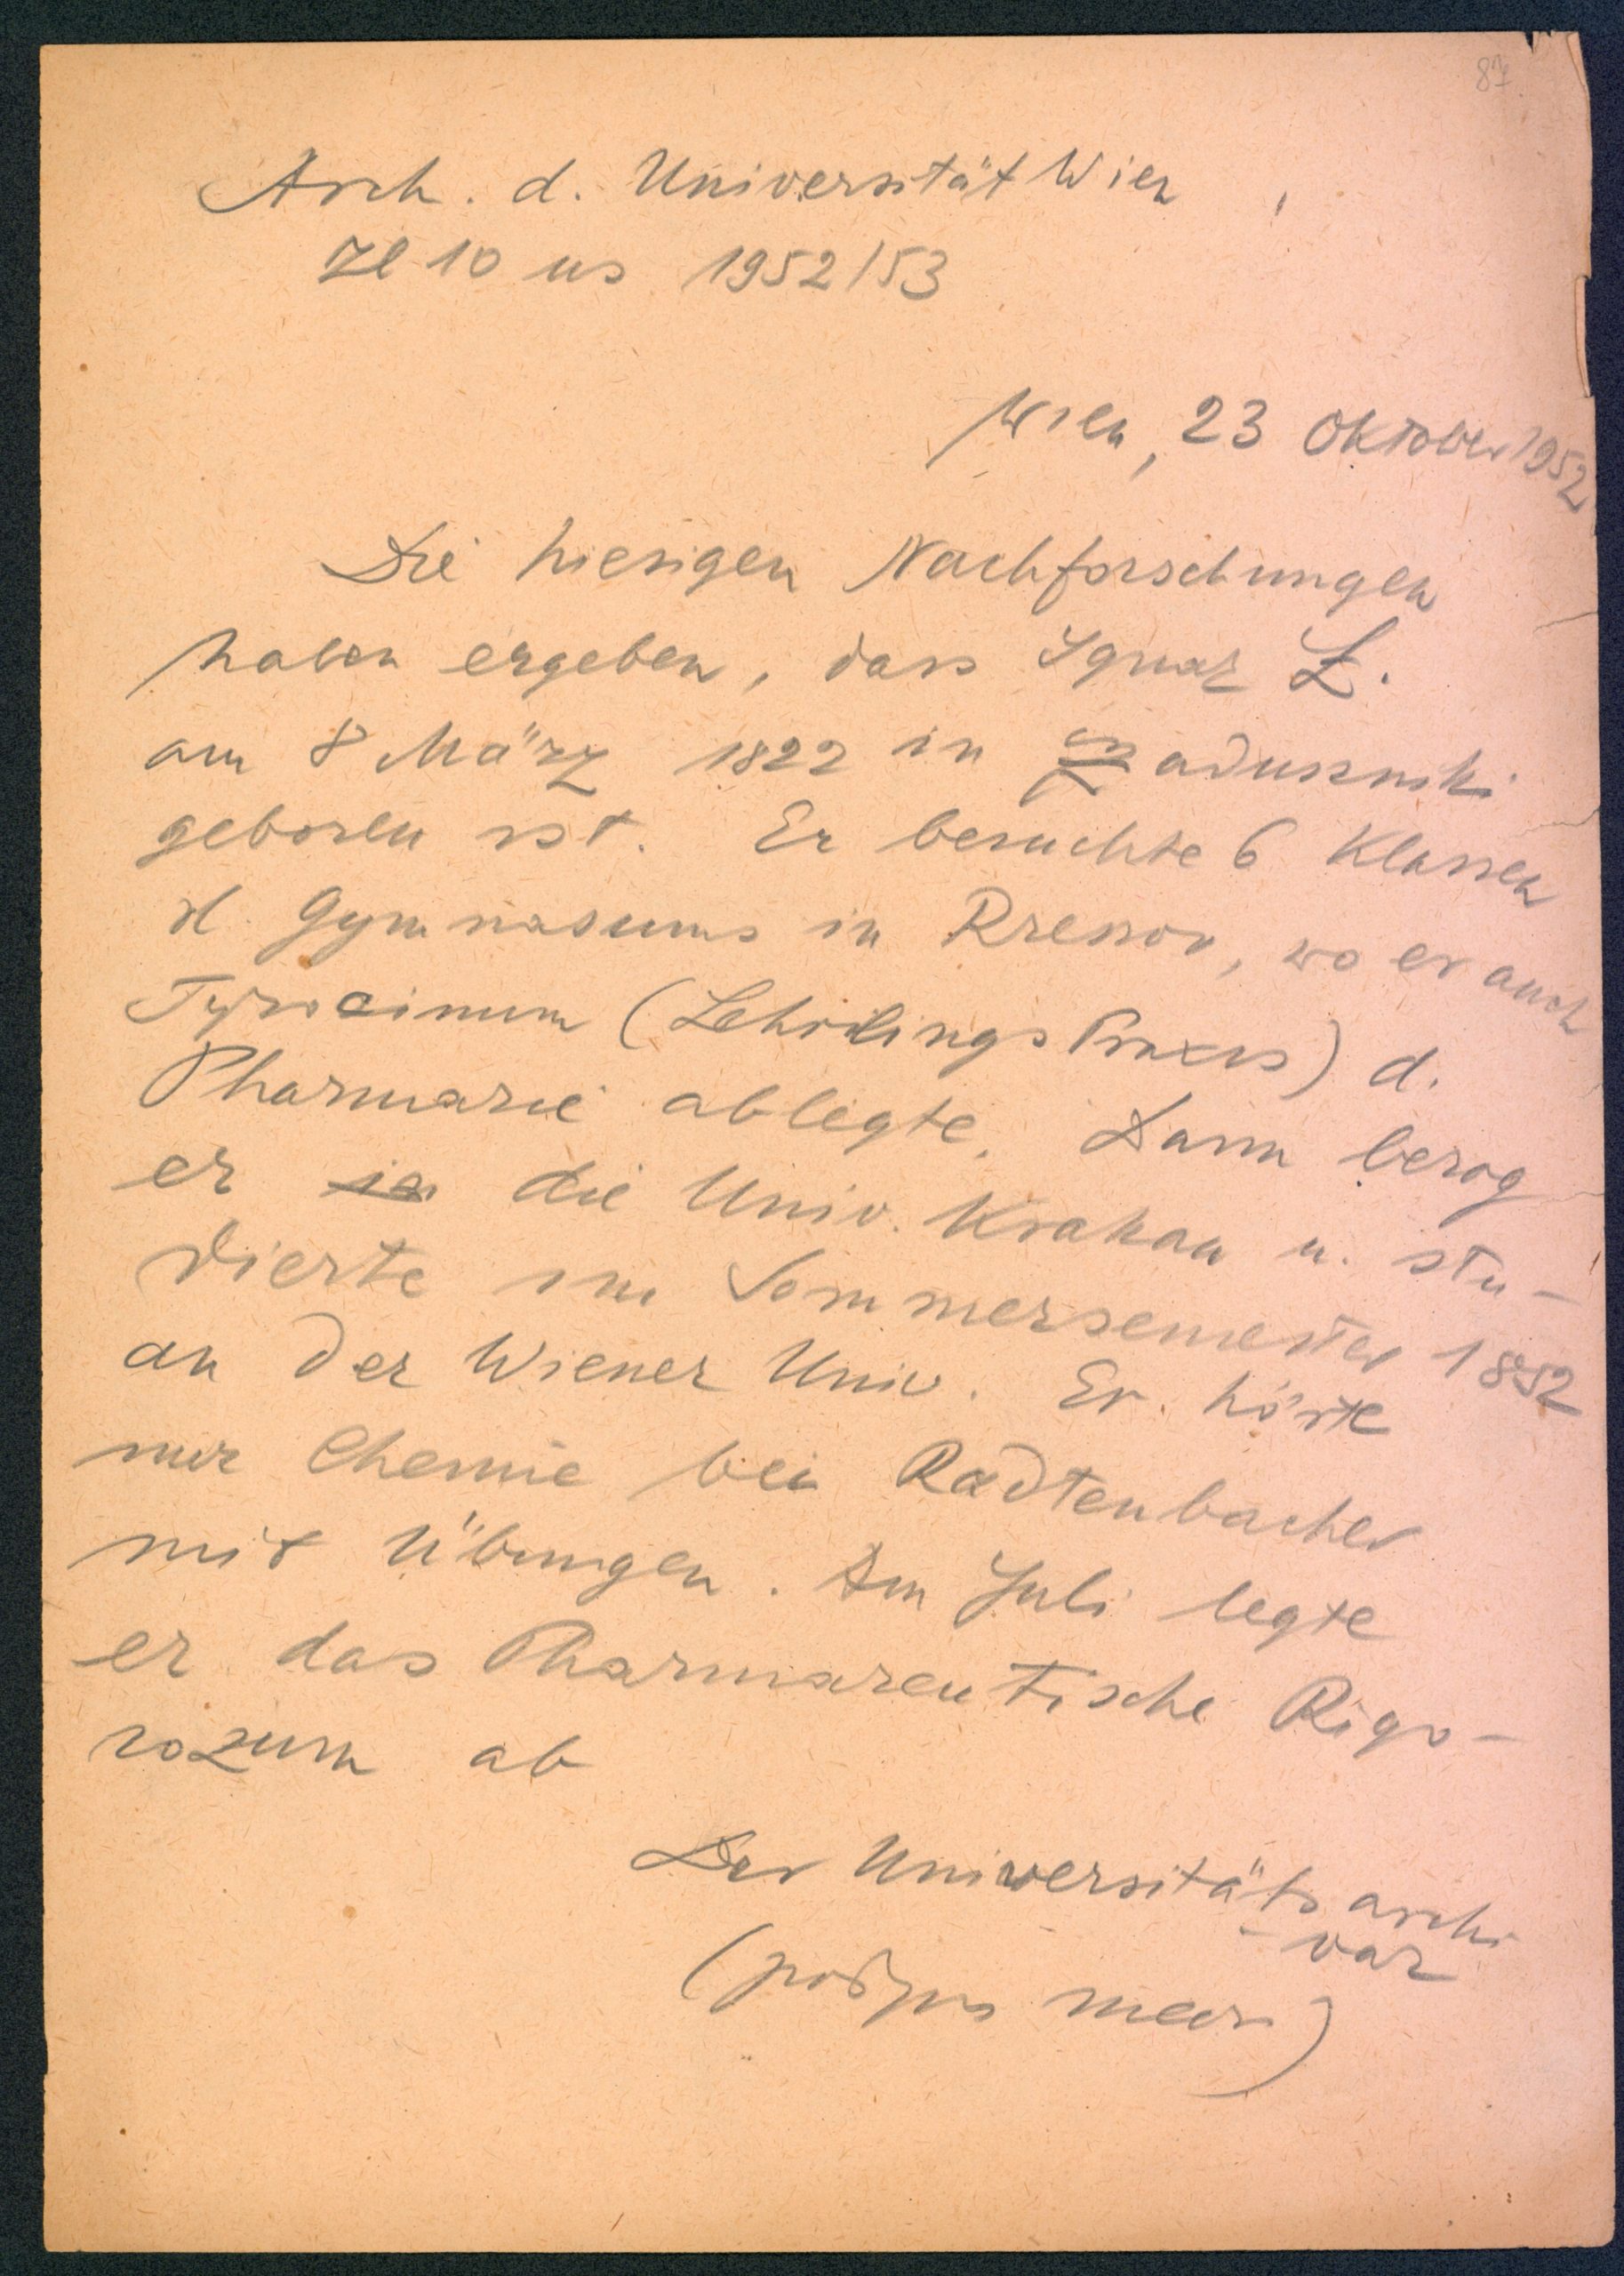 87
Arch. d. Universität Wien
Zl 10 us 1952/53
Wien, 23 Oktober 1952
Die hiesigen Nachforschungen
haben ergeben, dass Ignaz Ł.
am 8 März 1822 in Zaduszniki
geboren ist. Er besuchte 6 Klassen
d. Gymnasiums in Rzeszow, wo er auch
Tyrocinium (Lehrlings Praxis) d.
Pharmazie ablegte. Dann bezog
er in die Univ. Krakau u. stu-
dierte im Sommersemester 1852
an der Wiener Univ. Er hörte
nur Chemie bei Radtenbacher
mit Übungen. Im Juli legte
er das Pharmazeutische Rigo-
rozum ab
Der Universitäts archi
-var
(podpis mear)